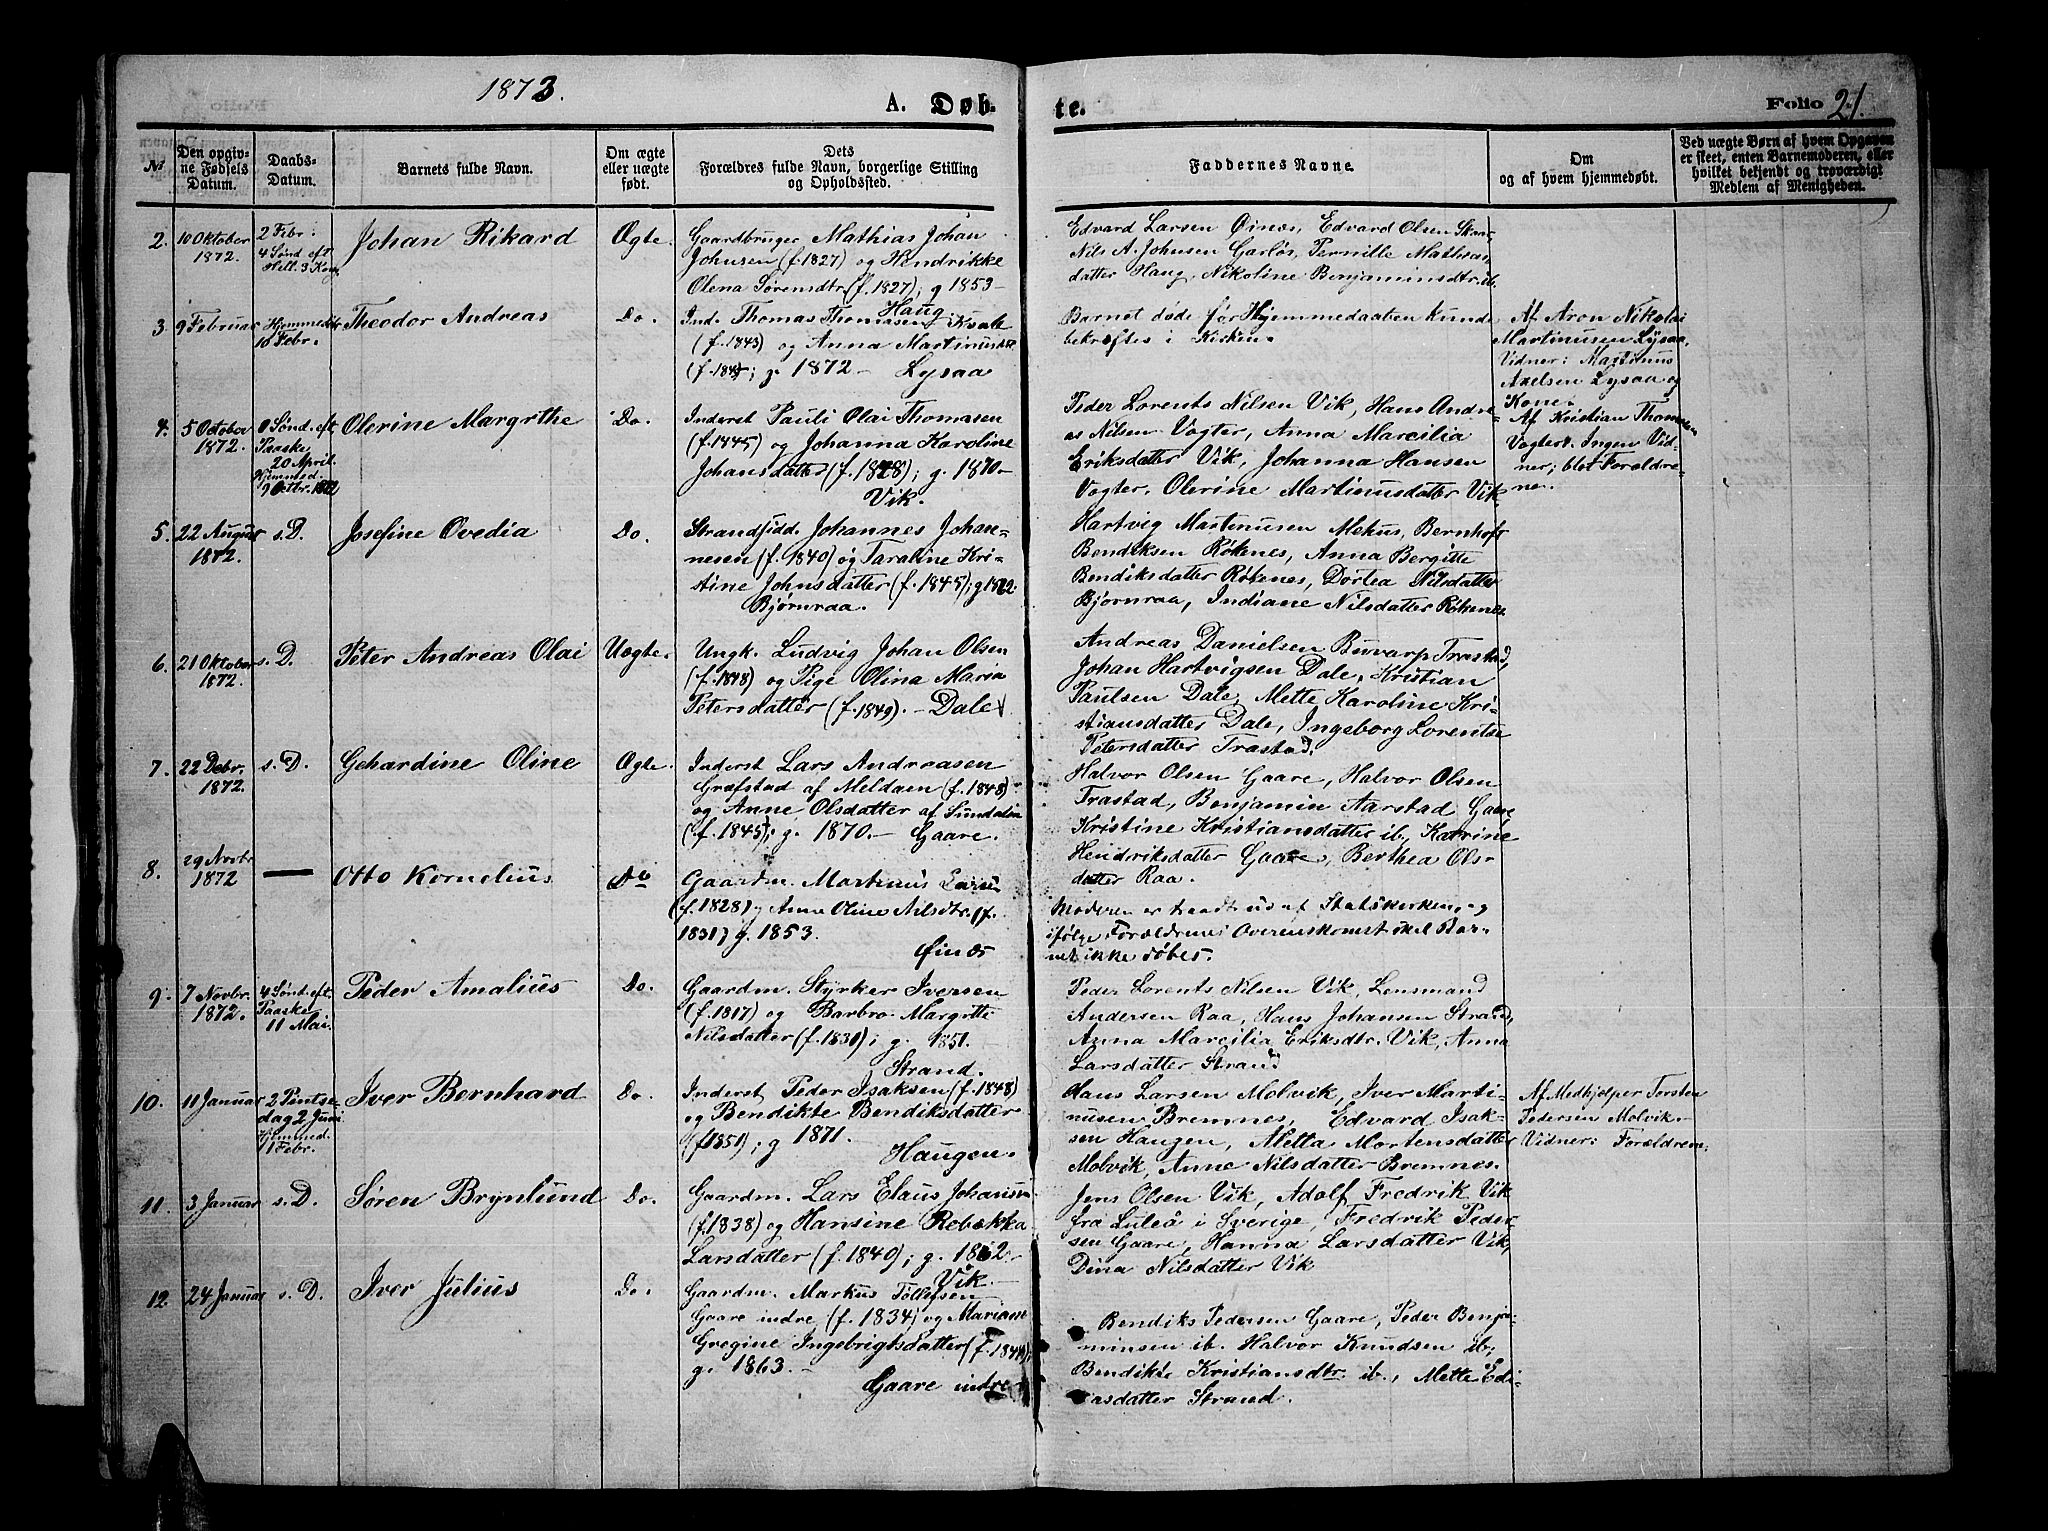 1873.
A. Døb-
te.
Folio 21.
№
Den opgiv-
ne Fødsels
Datum.
Daabs-
Datum.
Barnets fulde Navn.
Om ægte
eller uægte
født.
Dets
Forældres fulde Navn, borgerlige Stilling
og Opholdssted.
Faddernes Navne.
Om
og af hvem hjemmedøbt.
Ved uægte Børn af hvem Opgaven
er skeet, enten Barnemoderen, eller
hvilket bekjendt og troværdigt
Medlem af Menigheden.
2.
10 Oktober
1872.
2 Febr:
4 Sønd eft
Hell. 3 Kong.
Johan Rikard
Ægte.
Gaardbruger Mathias Johan
Johnsen (f. 1827) og Hendrikke
Olena Sørensdtr (f. 1827); g 1853 -
Haug
Edvard Larsen Øines, Edvard Olsen Skaar,
Nils A. Johnsen Garlös, Pernille Mathias
datter Haug, Nikoline Benjaminsdtr ib.
3.
9 Februar
Hjemmedbt
16 Febr.
Theodor Andreas
Do.
Ind. Thomas Thomasen Kvale
(f. 1843) og Anna Martinusdtr
(f. 184); g. 1872 - Lysaa
Barnet døde før Hjemmedaaben kunde
bekræftes i Kirken.
Af Aron Nikolai
Martinusen Lysaa.
Vidner: Martinus
Axelsen Lysaa og
Kone.
4.
5 October
1872.
Sønd. eft
Paaske
20 April.
Hjemmed.
9 Octbr. 1872
Olerine Margrthe
Do.
Inderst Pauli Olai Thomasen
(f. 1845) og Johanna Karoline
Johansdatter (f. 1848); g. 1870 -
Vik.
Peder Lorents Nilsen Vik, Hans Andre-
as Nilsen Vogter, Anna Marcilia
Eriksdatter Vik, Johanna Hansen
Vogter, Olerine Martinusdatter Vik
Af Kristian Thomasen
Vogter. Ingen Vid-
ner; blot Forældre-
ne.
5.
22 August
1872.
s. D.
Josefine Ovedia
Do.
Strandsidd. Johannes Johan-
nesen (f. 1840) og Taraline Kri-
stine Johnsdatter (f. 1845); g 1862
Bjørnraa.
Hartvig Martinusen Mekus, Bernhoft
Bendiksen Røkenes, Anna Bergitte
Bendiksdatter Røkenes, Dortea Nilsdatter
Bjørnraa, Indiane Nilsdatter Røkenes.
6.
21 Oktober
1872.
s. D.
Peter Andreas Olai
Uægte.
Ungk. Ludvig Johan Olsen
(f. 1848) og Pige Olina Maria
Petersdatter (f. 1849). - Dale
Andreas Danielsen Buvarp Trastad,
Johan Hartvigsen Dale, Kristian
Paulsen Dale, Mette Karoline Kri-
stiansdatter Dale, Ingeborg Lorentse
Petersdatter Trastad.
7.
22 Debr.
1872.
s. D.
Gehardine Oline
Ægte.
Inderst Lars Andreasen
Græfstad af Meldaen (f. 1848)
og Anne Olsdatter af Sundalen
(f. 1845); g. 1870. - Gaare.
Halvor Olsen Gaare, Halvor Olsen
Trastad, Benjamin Aarstad Gaare
Kristine Kristiansdatter ib, Katrine
Hendriksdatter Gaare, Berthea Ols-
datter Raa.
8.
29 Novbr
1872
—
Otto Kornelius
Do
Gaardm. Martinus Larsen
(f. 1828) og Anne Oline Nilsdtr. (f.
1831) g. 1853.
Øines
Moderen er traadt ud af Statskirken, og
ifølge Forældrenes Overenskomst skal Bar-
net ikke døbes.
9.
7 Novbr.
1872.
4 Sønd. eft.
Paaske
11 Mai.
Peder Amalius
Do.
Gaardm. Styrker Iversen
(f. 1817) og Barbro Margitte
Nilsdatter (f. 1830); g. 1851.
Strand.
Peder Lorents Nilsen Vik, Lensmand
Andersen Raa, Hans Johansen Strand,
Anna Marcilia Eriksdtr. Vik, Anna
Larsdatter Strand
10.
11 Januar
2 Pintse-
dag 2 Juni
Hjemmed.
11 Febr.
Iver Bernhard
Do.
Inderst Peder Isaksen (f. 1848)
og Bendikte Bendiksdatter
(f 1851); g 1871.
Haugen.
Hans Larsen Molvik, Iver Marti-
nusen Bremnes, Edvard Isak-
sen Haugen, Metta Mortensdatter
Molvik, Anne Nilsdatter Bremnes.
Af Medhjælper Torsten
Pedersen Molvik.
Vidner: Forældrene.
11.
3 Januar
s. D.
Søren Brynlund
Do.
Gaardm. Lars Elaus Johansen
(f. 1838) og Hansine Rebekka
Larsdatter (f. 1840); g. 1862.
Vik. -
Jens Olsen Vik, Adolf Fredrik Vik
fra Luleå i Sverige, Fredrik Peder-
sen Gaare, Hanna Larsdatter Vik,
Dina Nilsdatter Vik
12.
24 Januar
s. D.
Iver Julius
Do.
Gaardm. Markus Tollefsen
Gaare indre (f. 1834) og Mariane
Gregine Ingebrigtsdatter (f. 1840);
g. 1863. -
Gaare indre
Bendiks Pedersen Gaare, Peder Benja-
minsen ib. Halvor Knudsen ib,
Bendikte Kristiansdtr ib., Mette Edi-
asdatter Strand.